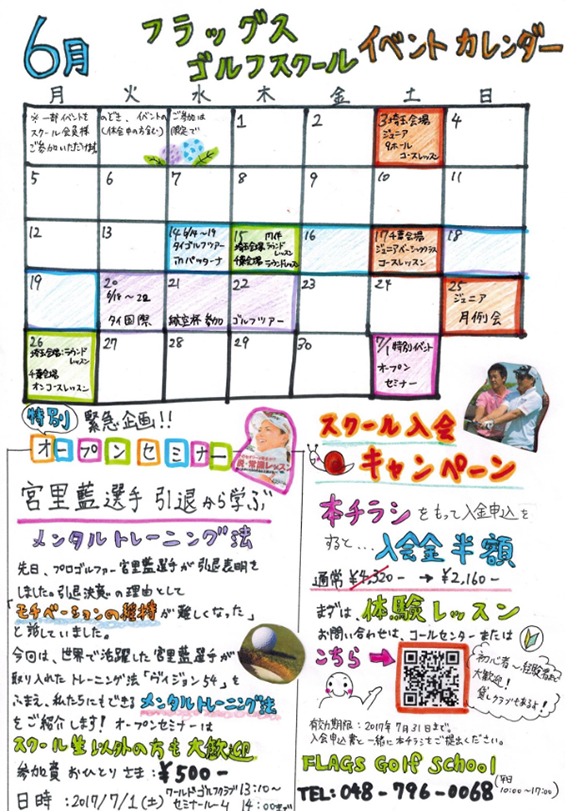 6月
フラッグス
ゴルフスクール
イベント カレンダー
月 火 水 木 金 土 日
※一部イベントを
スクール会員様
のぞき、イベントの
(休会中の方含む)
ご参加は
限定で
1
2
3 埼玉会場
ジュニア
9ホール
コースレッスン
4
5 6 7 8 9 10 11
12
13
14 6/14~19
タイゴルフツアー
inパッターナ
15
埼玉会場 ラウンド
レッスン
千葉会場
ラウンドレッスン
16
17 千葉会場
ジュニアベーシッククラス
コースレッスン
18
19
20
6/18~22
タイ国際
21
航空杯 参加
22
ゴルフツアー
23
24
25
ジュニア
月例会
26
埼玉会場:ラウンド
レッスン
千葉会場
オンコースレッスン
27 28 29 30
7/1 特別イベント
オープン
セミナー
特別
緊急企画!!
オープンセミナー
宮里藍選手 引退から学ぶ
メンタルトレーニング法
先日、プロゴルファー宮里藍選手が引退表明を
しました。引退決意の理由として
「モチベーションの維持が難しくなった」
と話していました。
今回は、世界で活躍した宮里藍選手が
取り入れたトレーニング法「ヴィジョン54」を
ふまえ、私たちにもできるメンタルトレーニング法
をご紹介します! オープンセミナーは
スクール生以外の方も大歓迎
参加費 おひとりさま:¥500-
日時:2017/7/1(土)
ワールドゴルフクラブ
セミナールーム
13:10~
14:00まで
スクール入会
キャンペーン
本チラシをもって入会申込を
すると…入会金半額
通常 ¥4,320- → ¥2,160-
まずは、体験レッスン
お問い合わせは、コールセンターまたは
こちら→
初心者~経験者まで
大歓迎!
貸しクラブもあるよ!
有効期限:2017年7月31日まで。
入会申込書と一緒に本チラシをご提出ください。
FLAGS Golf School
TEL:048-796-0068
(平日
10:00~17:00)